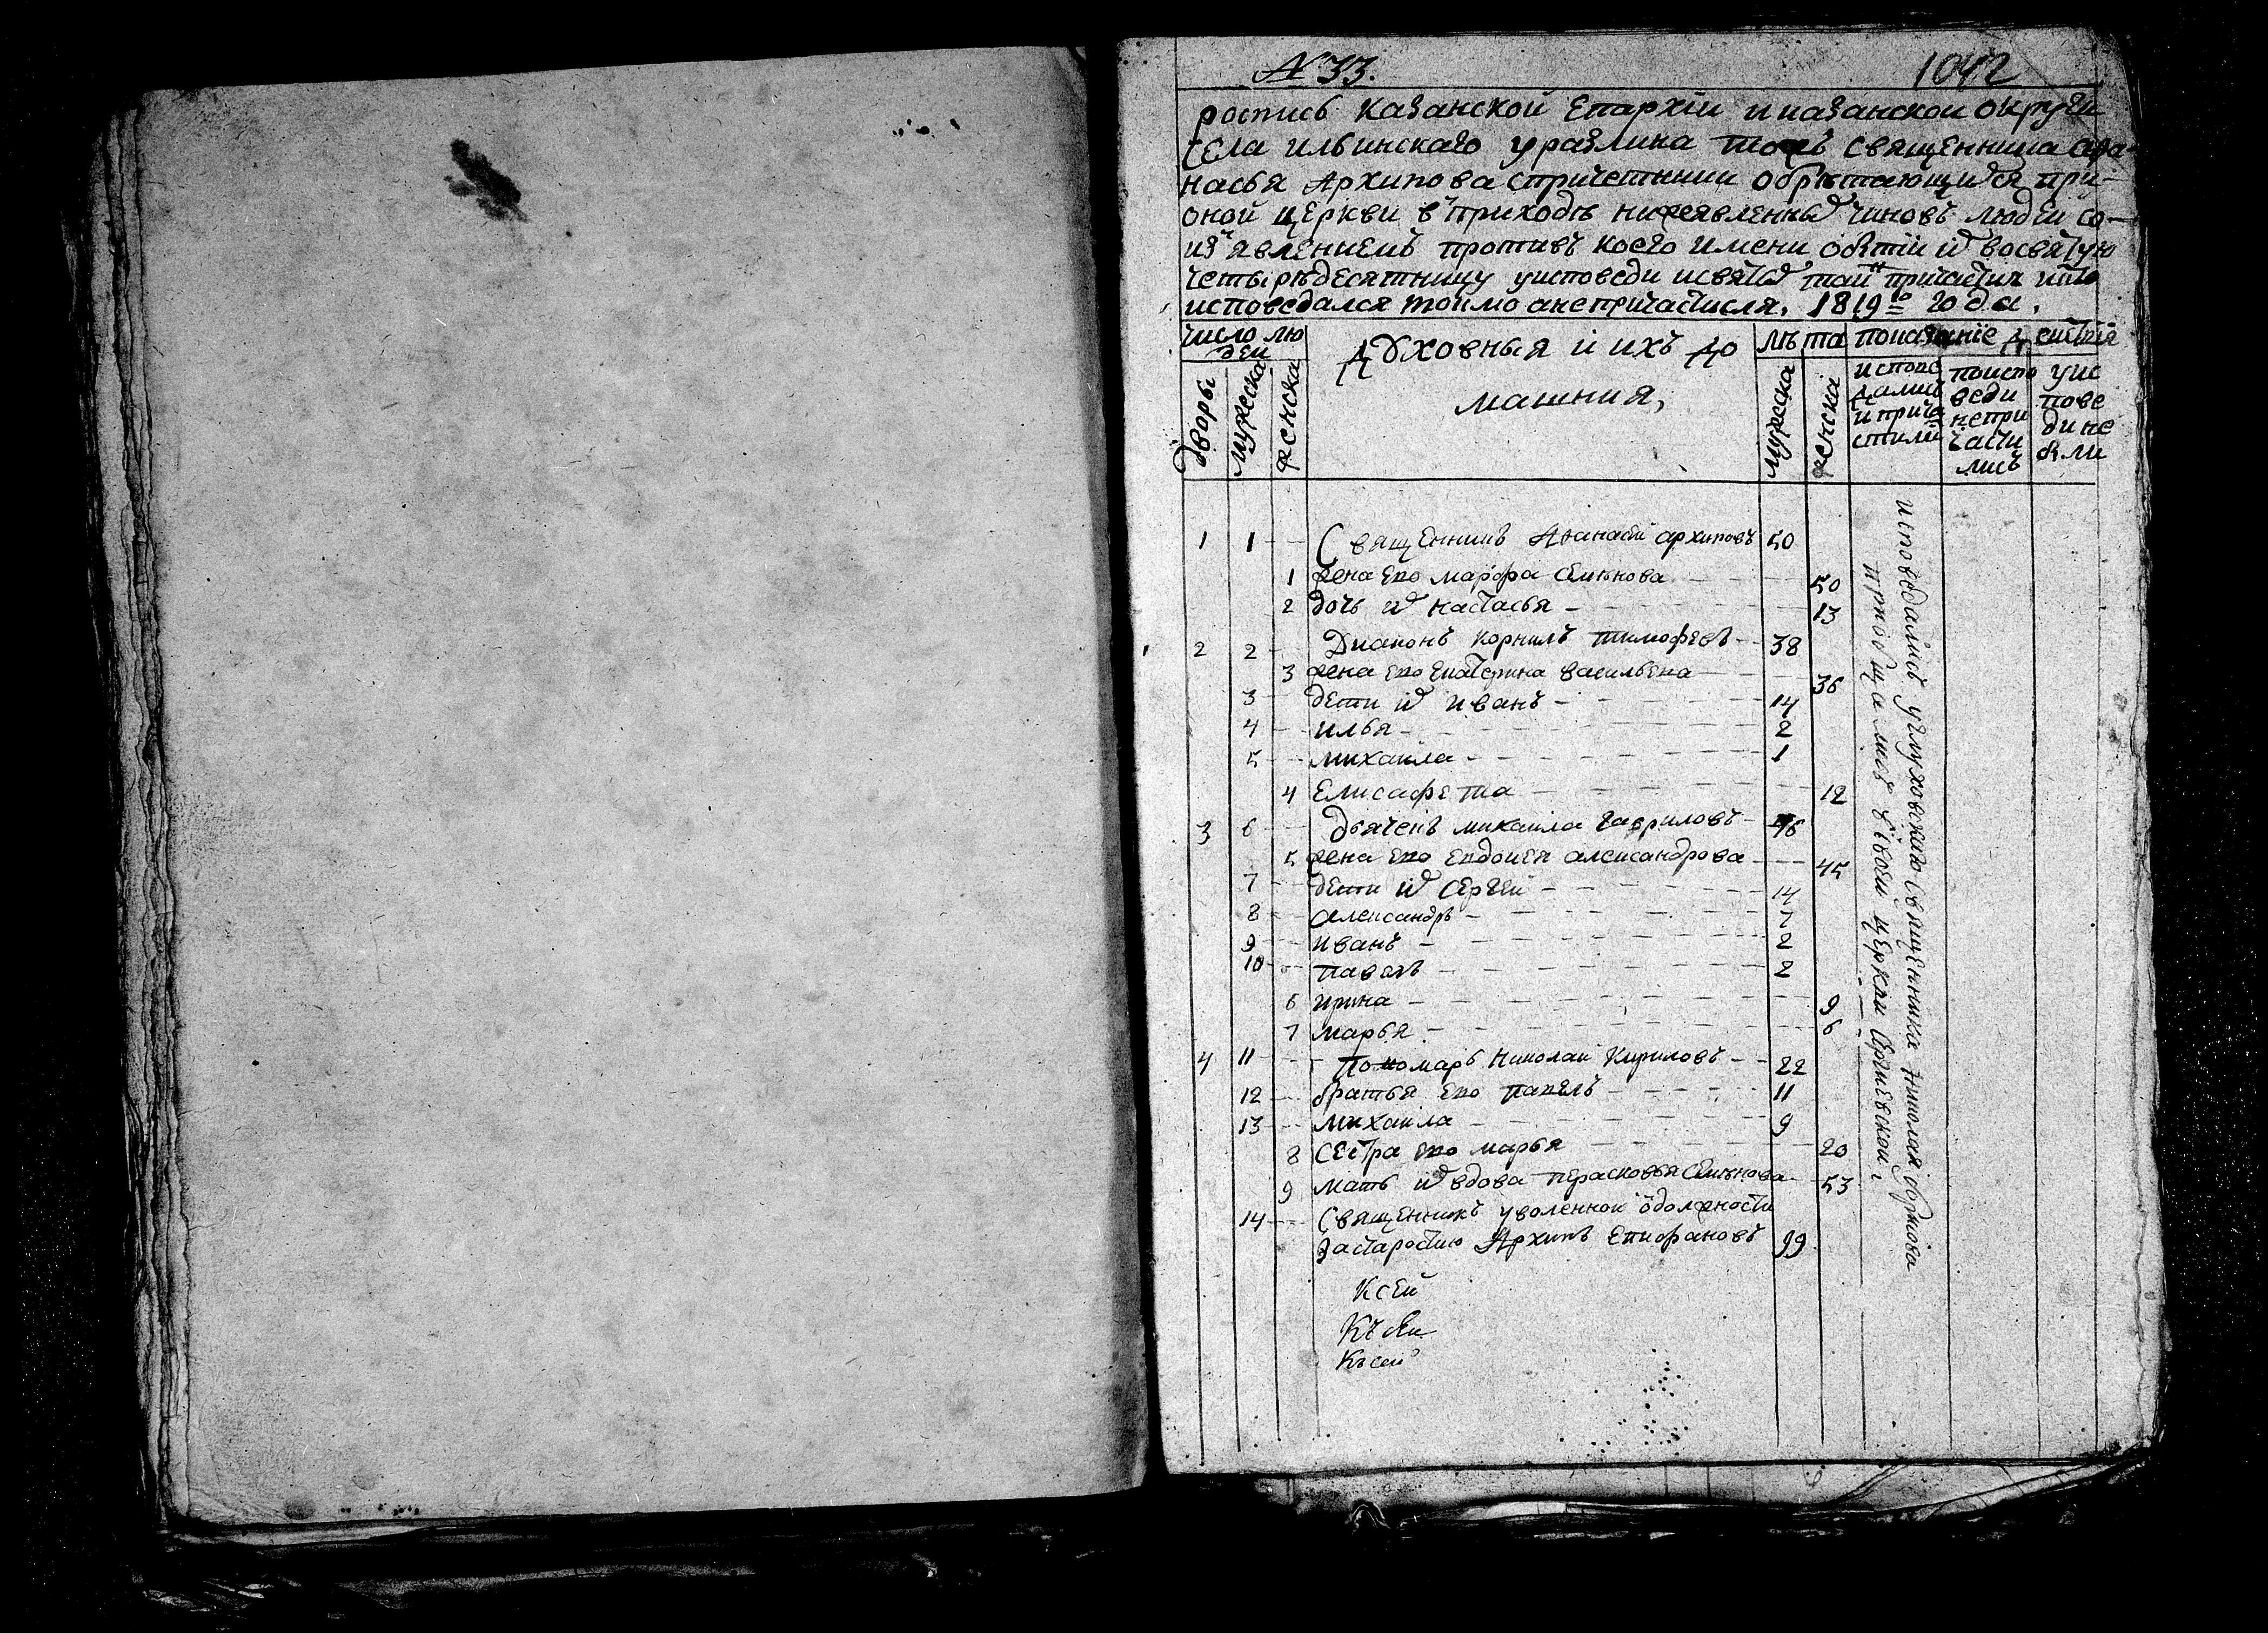 № 33. 1042
роспись Казанской Епархїи и казанской округи
села ильинскаго уразлина тожъ священника Афа-
насья Архипова спричетники обрѣтающихся при-
оной церкви въ приходѣ нижеявленныхъ чиновъ людей со-
изъявленіемъ противъ коего имени
четыредесятницу уисповеди исвятыхъ таинъ причастия
исповедался токмо анепричастился. 1819го года.
число лю
дей
дворы
мужеска
женска
Духовныя и ихъ до
машния,
лѣта
мужеска
женска
показанїе действїя
исповедались
и прича
стились
поиспо
веди
непри
части
лись
уис
пове
ди не
были
1 1 Священникъ Афанасей архиповъ 50
1 жена ево марфа семѣнова 50
2 дочь их настасья 13
2 2 Диаконъ корнилъ тимофѣевъ 38
3 жена ево екатерина васильева 36
3 дети их иванъ 14
4 илья 2
5 михаила 1
4 Елисафета 12
3 6 дьячекъ михаила гавриловъ 46
5 жена ево евдокея александрова 45
7 дети их сергей 14
8 александръ 7
9 иванъ 2
10 павелъ 2
6 ирина 9
7 марья 6
4 11 Пономарь николай Кириловъ 22
12 братья ево павелъ 11
13 михаила 9
8 сестра ево марья 20
9 мать их вдова перасковья семѣнова 53
14 священникъ уволенной ѿдолжности
застаростию Архипъ епифановъ 99
Ксей
Къ сей
Къ сей
исповедались углуховскаго священника николая
приобщались въ своей церкви